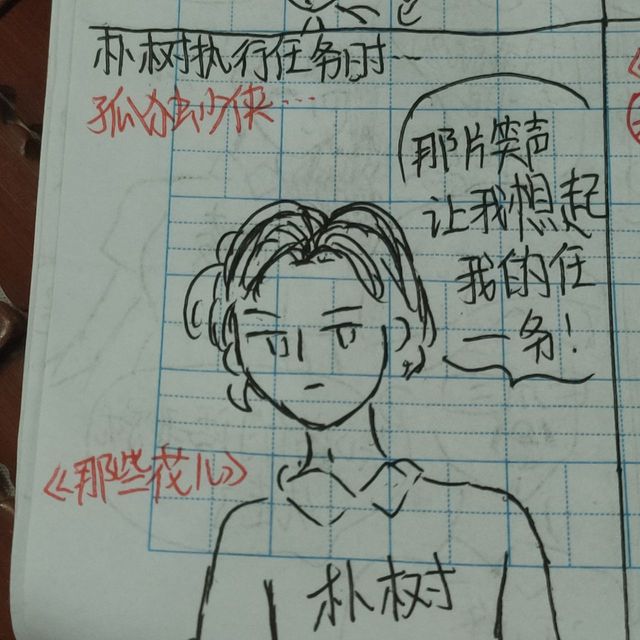 朴树执行任务时…
孤勇的少侠…
那片笑声
让我想起
我的任
务!
《那些花儿》
朴树